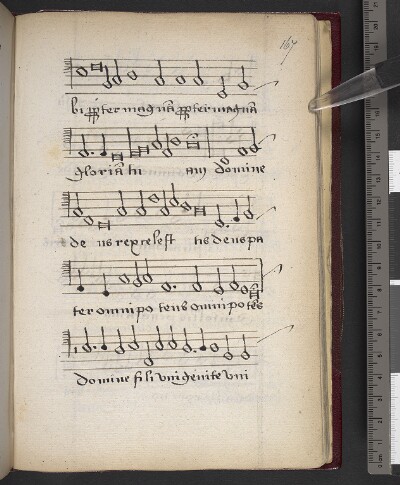 167
bi ppter magnā ppter magnā
gloriā tu am domine
de us rex celest tis deus pa
ter omnipo tens omnipotēs
domine fili unigenite uni